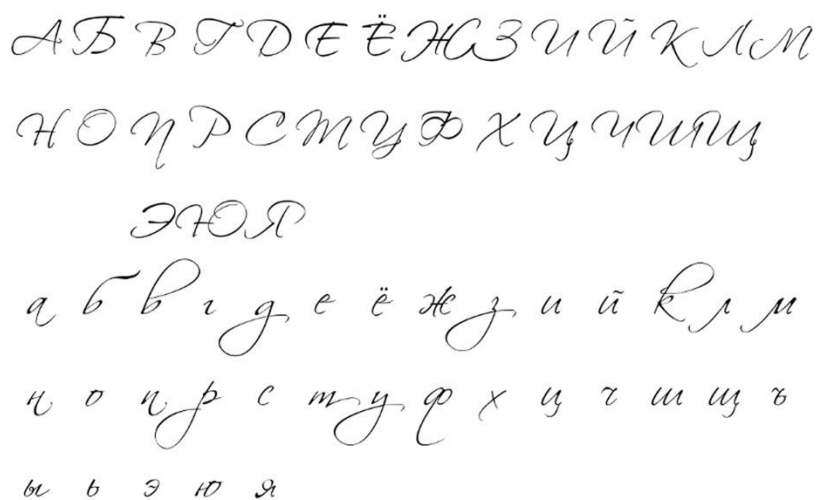 А Б В Г Д Е Ё Ж З И Й К Л М
Н О П Р С Т У Ф Х Ц Ч Ш Щ
Э Ю Я
а б в г д е ё ж з и й к л м
н о п р с т у ф х ц ч ш щ ъ
ы ь э ю я